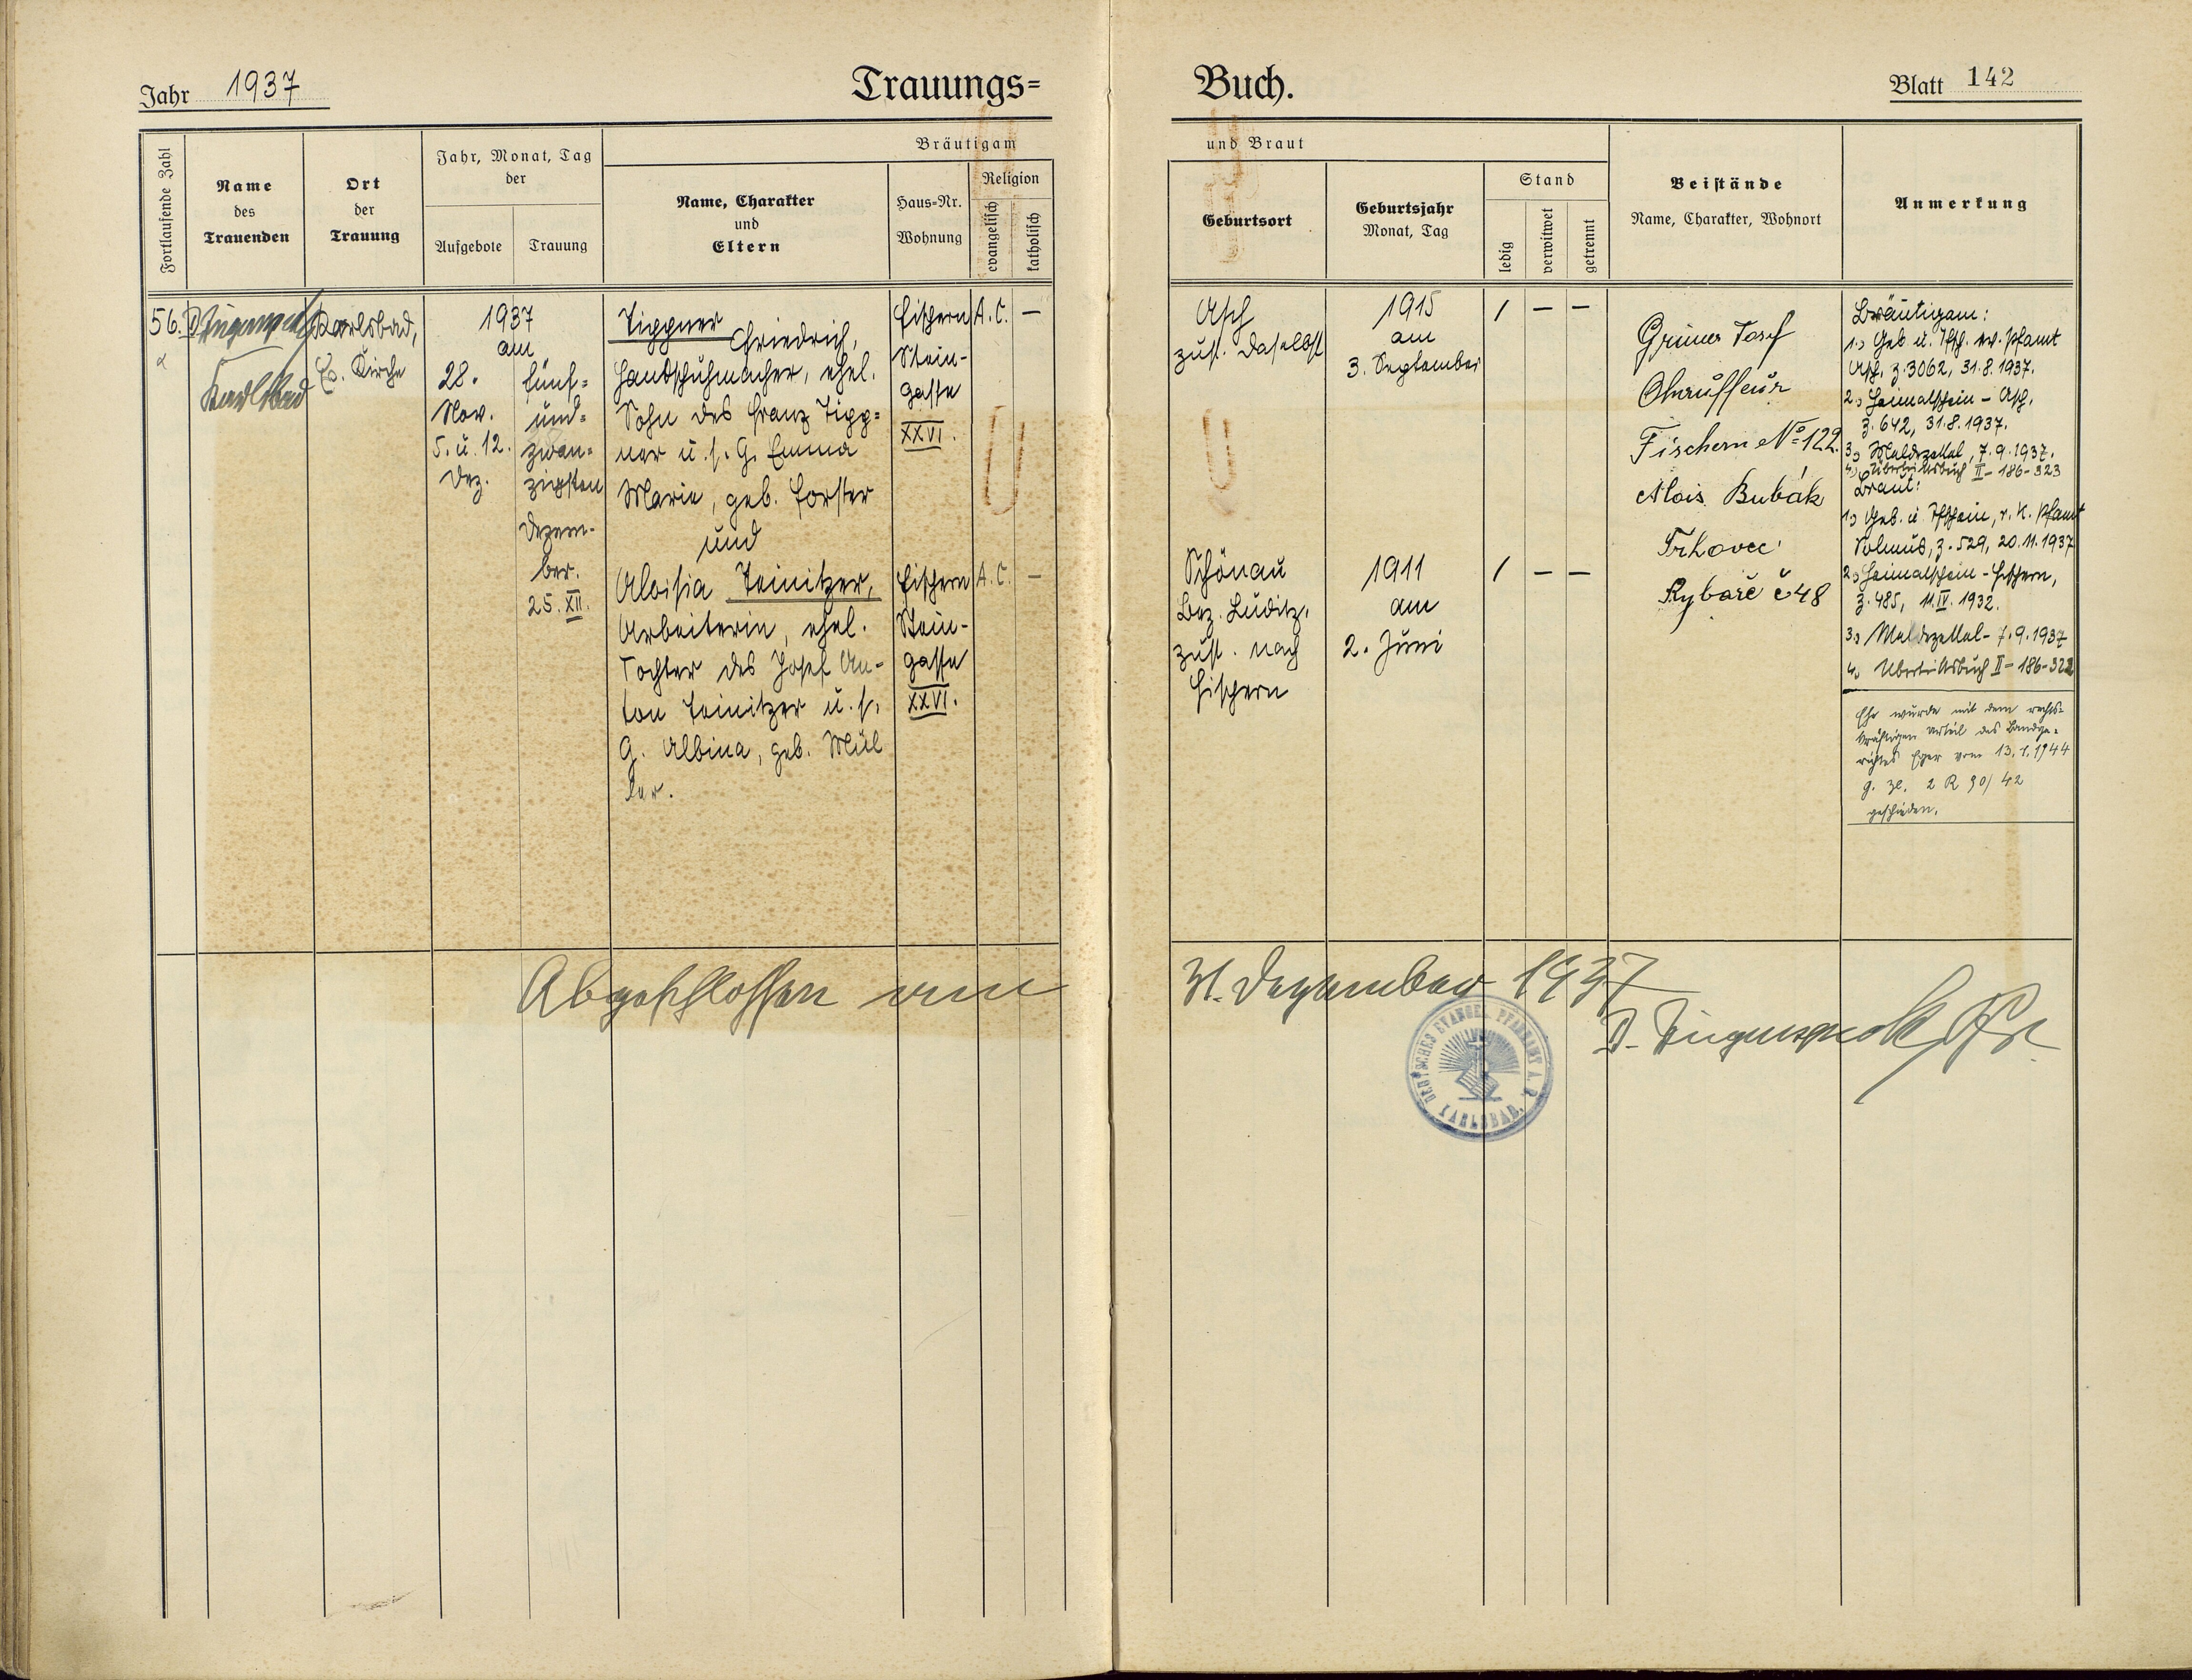 Jahr 1937
Trauungs=
Buch.
Blatt 142
Fortlaufende Zahl
Name
des
Trauenden
Ort
der
Trauung
Jahr, Monat, Tag
der
Aufgebote
Trauung
Bräutigam
Name, Charakter
und
Eltern
Haus=Nr.
Wohnung
Religion
evangelisch
katholisch
und Braut
Geburtsort
Geburtsjahr
Monat, Tag
Stand
ledig
verwitwet
getrennt
Beistände
Name, Charakter, Wohnort
Anmerkung
56.
Karlsbad
Karlsbad,
Ev. Kirche
1937
am
28.
Nov.
5. u. 12.
Dez.
fünf=
und=
zwan=
zigsten
Dezem-
ber.
25. XII.
Tippner
Friedrich,
Handschuhmacher, ehel.
Sohn des Franz Tipp=
ner u. s. G. Emma
Marie, geb. Forster
und
Aloisia Teinitzer,
Arbeiterin, ehel.
Tochter des Josef An-
ton Teinitzer u. s.
G. Albina, geb. Mül
ler.
Fischern
Stein-
gasse
XXVI.
A. C. —
Fischern
Stein-
gasse
XXVI.
A. C. —
Asch
zust. daselbst
1915
am
3. September
/ — —
Schönau
Bez. Luditz,
zust. nach
Fischern
1911
am
2. Juni
/ — —
Grüner Josef
Chauffeur
Fischern No 122.
Alois Bubák
Trhovec
Rybaře č 48
Bräutigam:
1.) Geb. u. Tfsch. ev. Pfamt
Asch, Z. 3062, 31.8.1937.
2.) Heimatschein - Asch,
Z. 642, 31.8.1937.
3.) Meldezettel, 7.9.1937.
4.) Übertrittsbuch II - 186-323
Braut:
1.) Geb. u. Tfschein, r. k. Pfamt
Z. 529, 20.11.1937
2.) Heimatschein - Fischern,
Z. 485, 11.IV. 1932.
3.) Meldezettel - 7.9.1937
4.) Übertrittsbuch II - 186-322
Ehe wurde mit dem rechts=
kräftigen Urteil des Landge=
richtes Eger vom 13.1.1944
g. Zl. 2 R 90/42
geschieden.
Abgeschlossen am
31. Dezember 1937
DEUTSCHES EVANGEL. PFARRAMT A. B.
KARLSBAD.